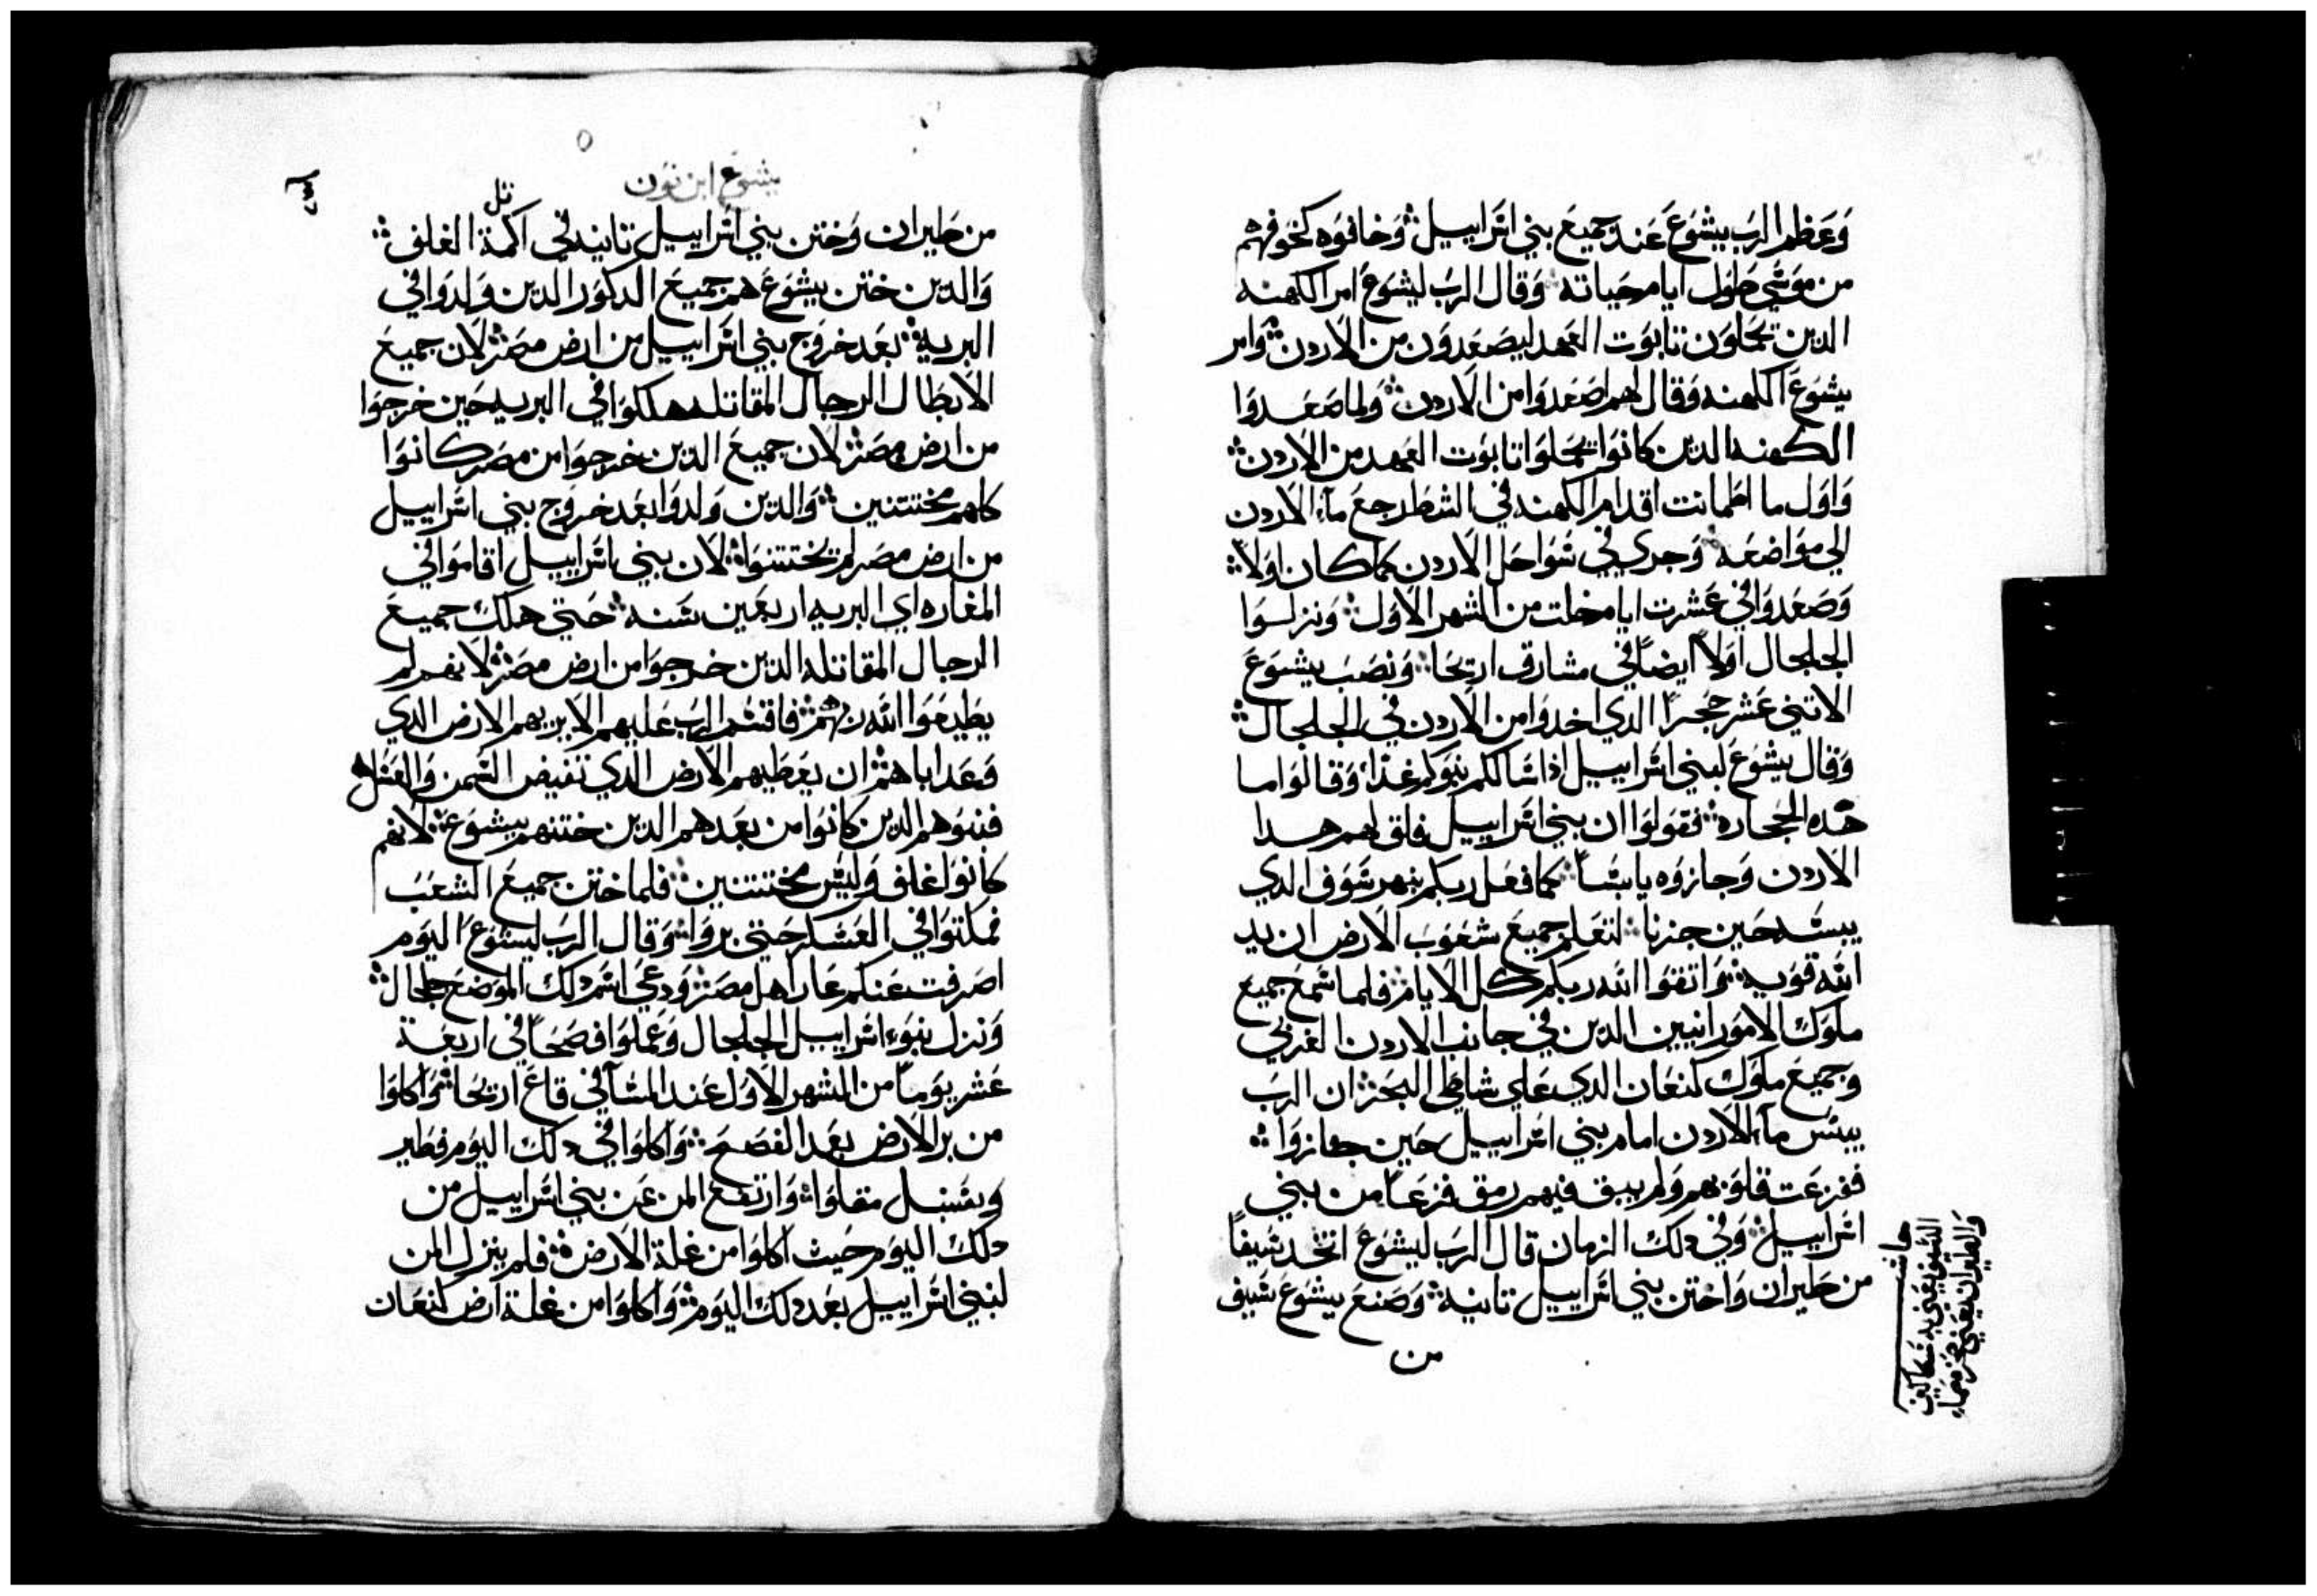 وعظم الرب يشوع عند جميع بني اسراييل وخافوه كخوفهم
من موسي طول ايام حياته وقال الرب ليشوع امر الكهنه
الدين يحملون تابوت العهد ليصعدون من الاردن وامر
يشوع الكهنه وقال لهم اصعدوا من الاردن ولما صعدوا
الكهنه الدين كانوا يحملوا تابوت العهد من الاردن
واول ما اطمانت اقدام الكهنه في الشط رجع ماء الاردن
الي مواضعه وجري في سواحل الاردن كما كان اولاً
وصعدوا في عشرت ايام خلت من الشهر الاول ونزلوا
الجلجال اولاً ايضاً في مشارق اريحا ونصب يشوع
الاتني عشر حجراً الدي اخدوا من الاردن في الجلجال
وقال يشوع لبني اسراييل اذا سالكم بنوكم غذاً وقالوا ما
هده الحجاره فقولوا ان بني اسراييل فلق لهم هدا
الاردن وجازوه يابساً كما فعل ربكم بنهر سوف الدي
يبسه حين جزنا لتعلم جميع شعوب الارض ان يد
الله قويه واتقوا الله ربكم كل الايام فلما سمع جميع
ملوك الامورانيين الدين في جانب الاردن الغربي
وجميع ملوك كنعان الدي علي شاطي البحر ان الرب
يبس ماء الاردن امام بني اسراييل حين جازوا
ففزعت قلوبهم ولم يبق فيهم رمق فزعاً من بني
اسراييل وفي دلك الزمان قال الرب ليشوع اتخد سيفاً
من طيران واختن بني اسراييل تانية وصنع يشوع سيف
من
حاشيه
السيف يعني به سكاكين
والطيران يعني حجر صماء
يشوع ابن نون
تل
من طيران وختن بني اسراييل تانيه في اكمة الغلف
والدين ختن يشوع هم جميع الدكور الدين ولدوا في
البرية بعد خروج بني اسراييل من ارض مصر لان جميع
الابطال الرجال المقاتله هلكوا في البريه حين خرجوا
من ارض مصر لان جميع الدين خرجوا من مصر كانوا
كلهم مختتنين والدين ولدوا بعد خروج بني اسراييل
من ارض مصر لم يختتنوا لان بني اسراييل اقاموا في
المغاره اي البريه اربعين سنه حتي هلك جميع
الرجال المقاتله الدين خرجوا من ارض مصر لانهم لم
يطيعوا الله ربهم فاقسم الرب عليهم الا يريهم الارض الدي
وعد اباهم ان يعطيهم الارض الدي تفيض السمن والعسل
فبنوهم الدين كانوا من بعدهم الدين ختنهم يشوع لانهم
كانوا غلف وليس مختتنين فلما ختن جميع الشعب
فمكتوا في العسكر حتي بروا وقال الرب ليشوع اليوم
اصرفت عنكم عار اهل مصر ودعي اسم دلك الموضع جلجال
ونزل بنوء اسراييل الجلجال وعملوا فصحاً في اربعة
عشر يوماً من الشهر الاول عند المسآ في قاع اريحا واكلوا
من بر الارض بعد الفصح واكلوا في دلك اليوم فطير
وسنبل مقلوا وارتفع المن عن بني اسراييل من
دلك اليوم حيث اكلوا من غلة الارض فلم ينزل المن
لبني اسراييل بعد دلك اليوم واكلوا من غلة ارض كنعان